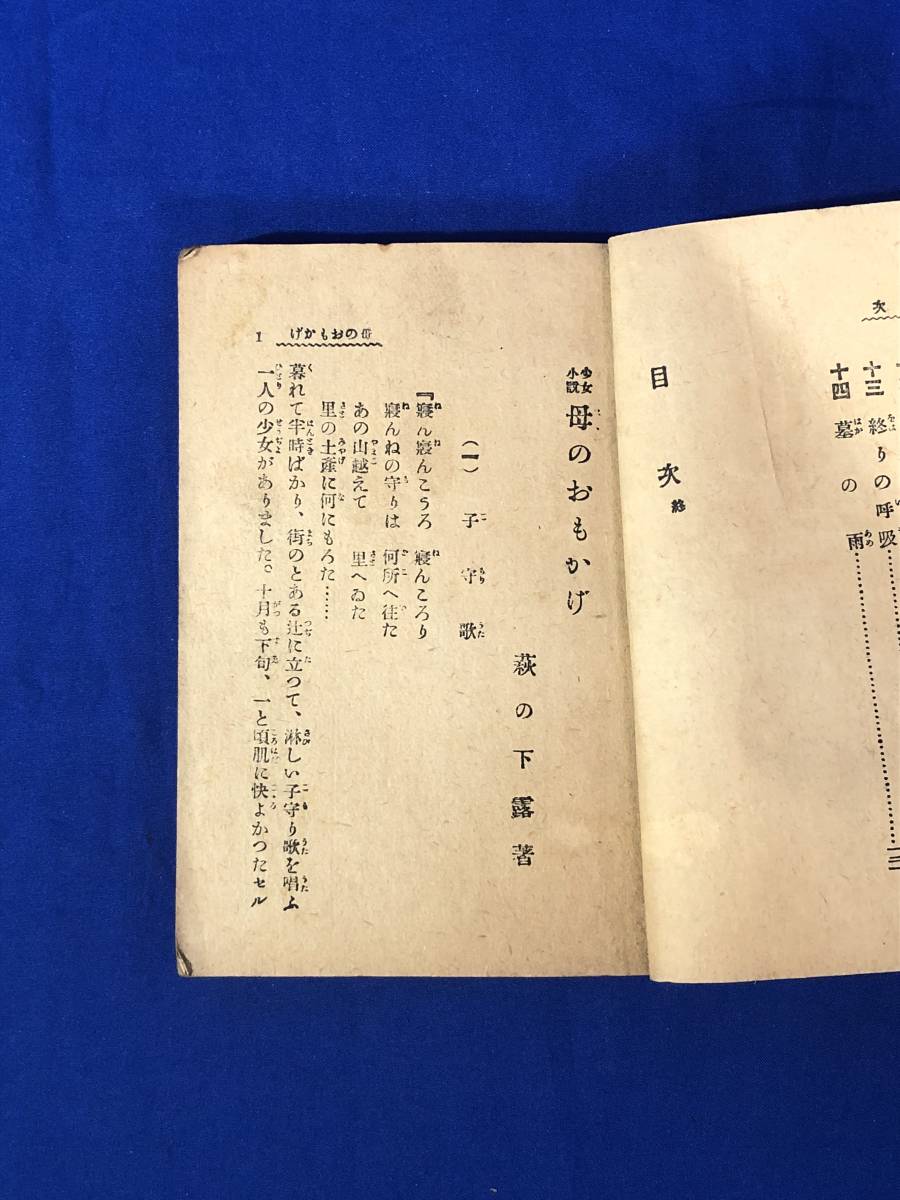 次
十三 終りの呼吸
十四 墓の雨
目次 終
げかもおの母 1
少女小説 母のおもかげ
萩の下露著
(一) 子守歌
『寢ん寢んこうろ 寢んころり
寢んねの守りは 何所へ往た
あの山越えて 里へゐた
里の土產に何にもろた……
暮れて半時ばかり、街のとある辻に立つて、淋しい子守り歌を唱ふ
一人の少女がありました。十月も下旬、一と頃肌に快よかつたセル